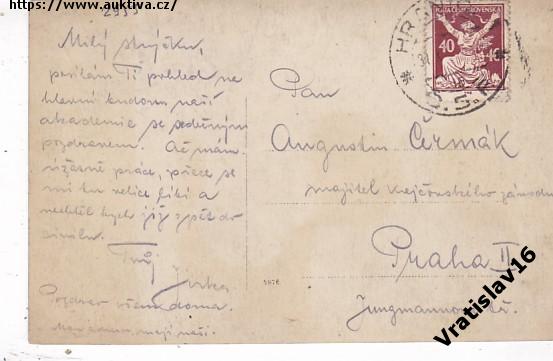 https://www.auktiva.cz/
2953
Milý strýčku,
posílám Ti pohled na
hlavní budovu naší
akademie se srdečným
pozdravem. Ač mám
práce, přece se
mi tu velice líbí a
nechtěl bych již zpět do
civilu.
Tvůj Jirka
Pozdrav všem doma.
naši.
HR
Č.S.P.
POŠTA ČESKOSLOVENSKÁ
40
Pan
Augustin Čermák
majitel krejčovského závodu
Praha II
Jungmannova
5876
Vratislav16